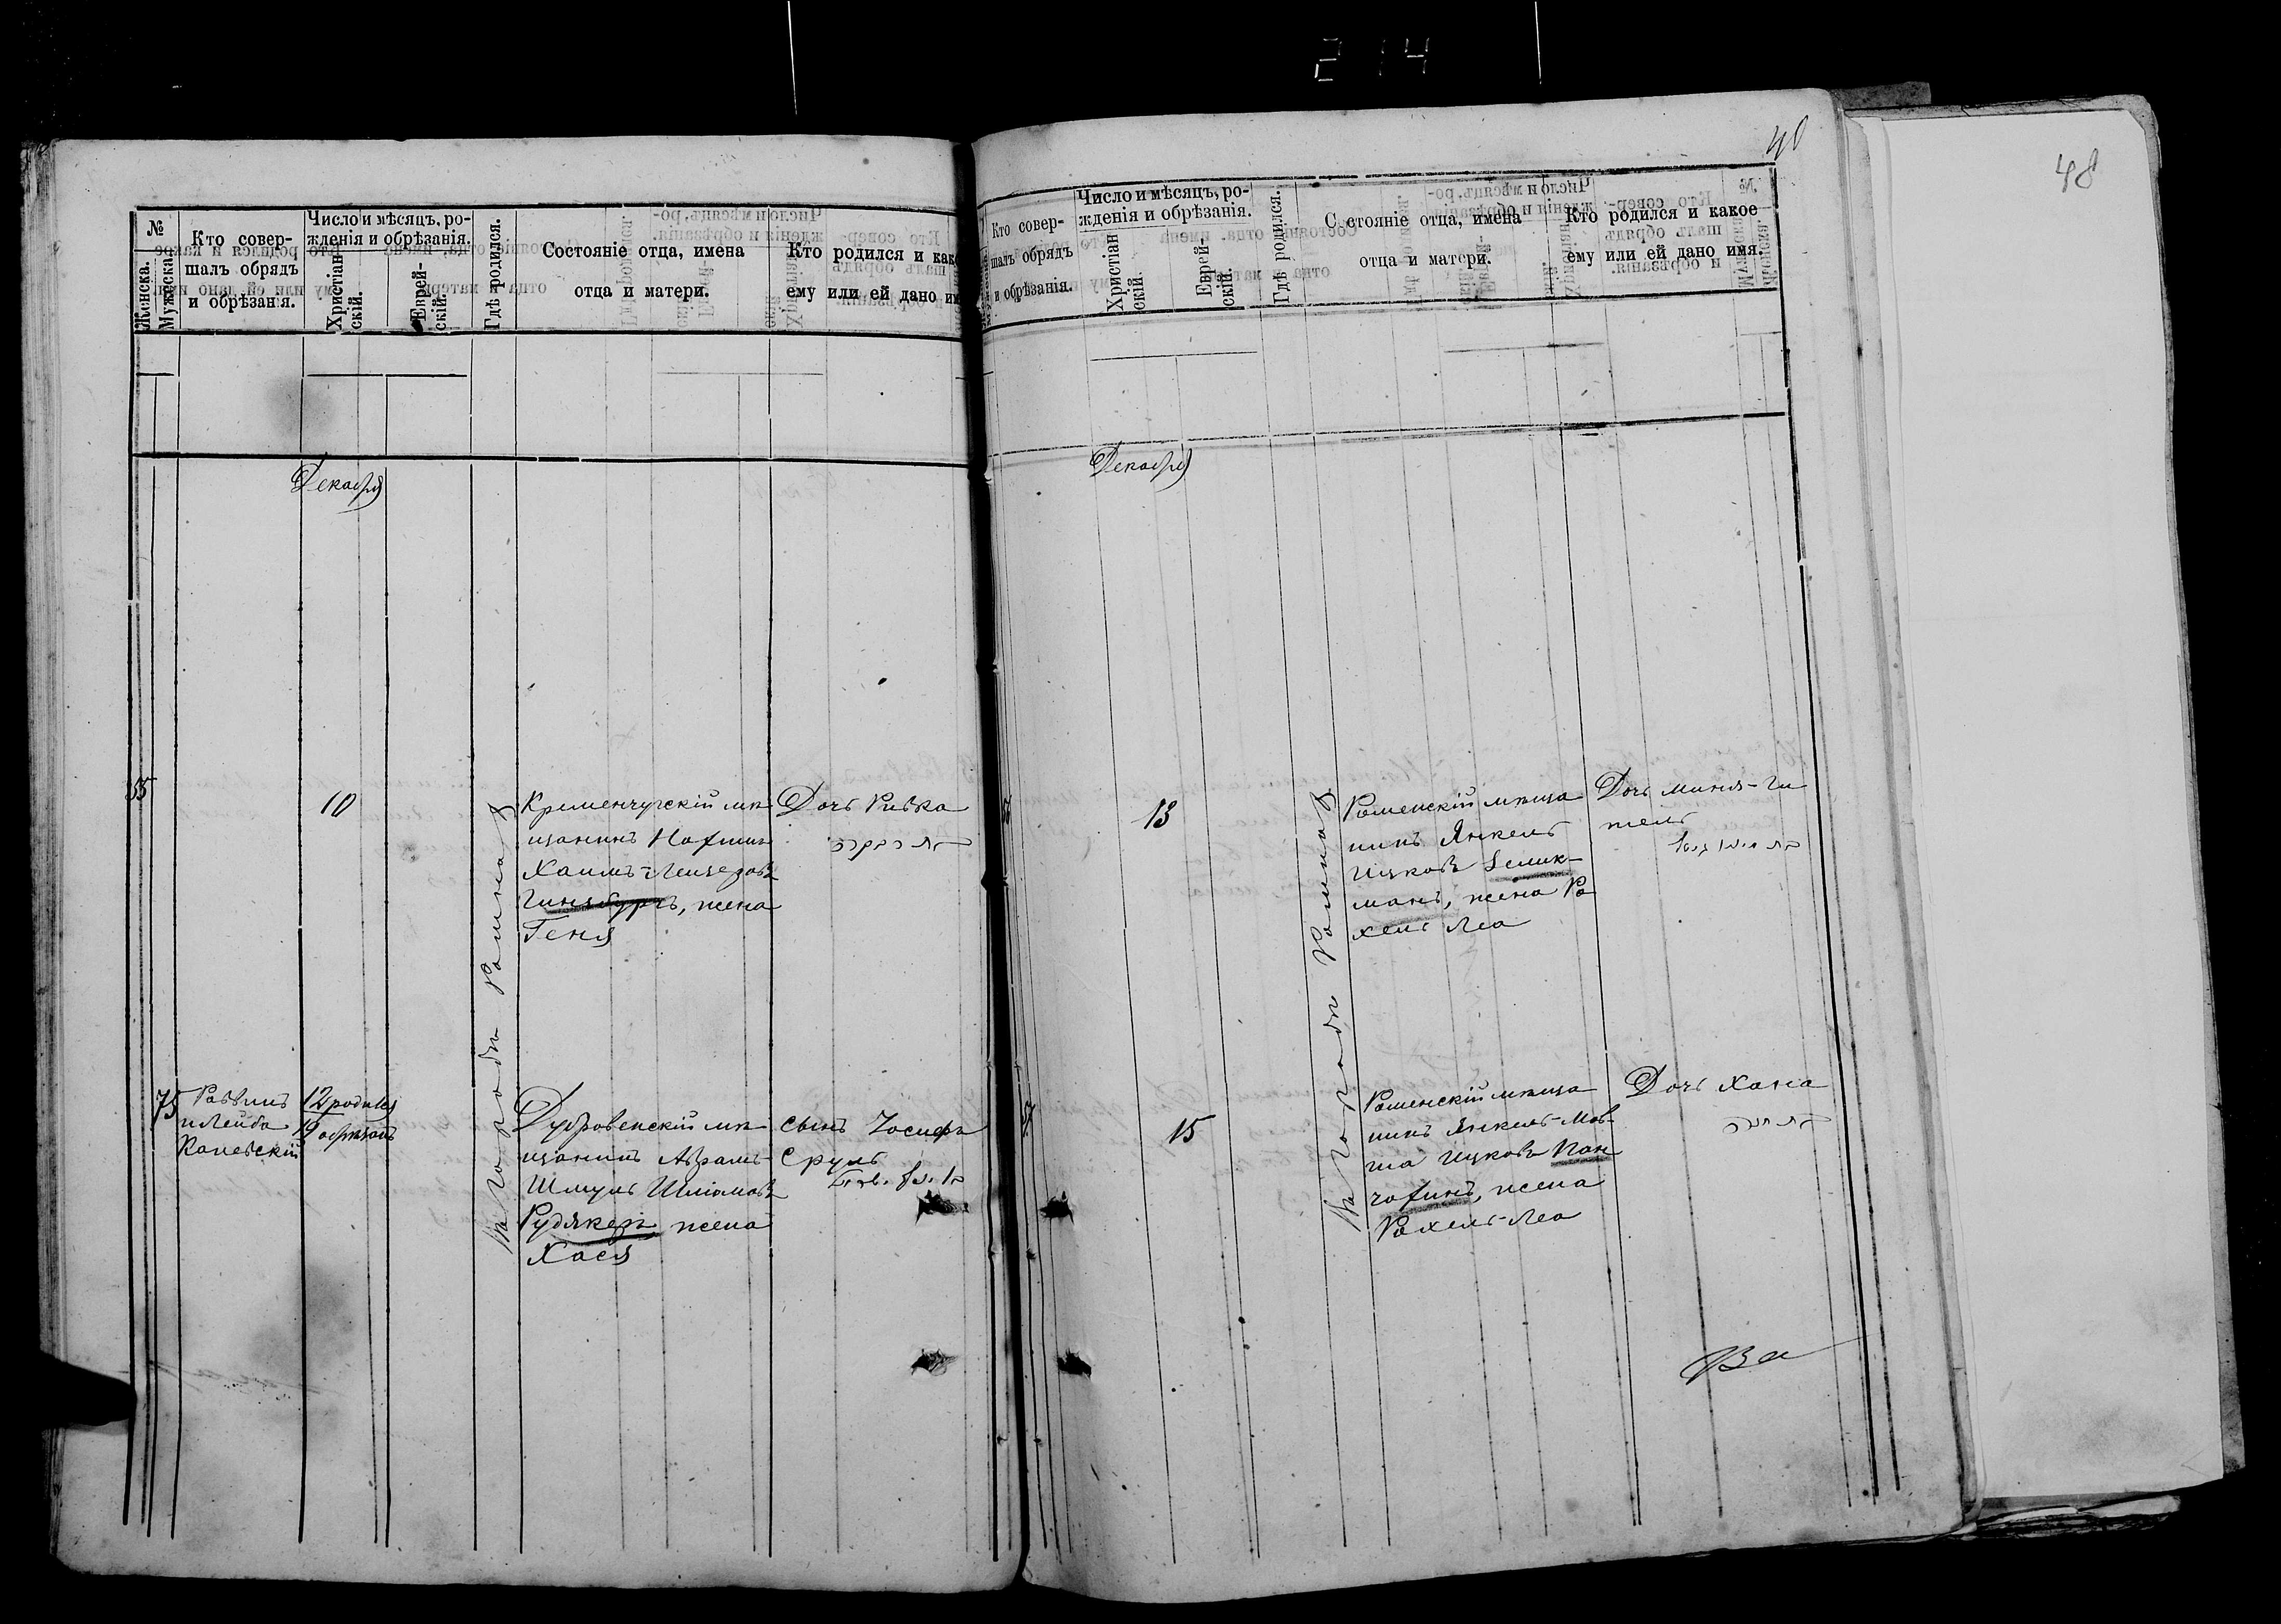 214
№
Женска.
Мужеска.
Кто совер-
шалъ обрядъ
и обрѣзанія.
Число и мѣсяцъ, ро-
жденія и обрѣзанія.
Христіан
скій.
Еврей-
скій.
Гдѣ родился.
Состояніе отца, имена
отца и матери.
Кто родился и как
ему или ей дано им
Декабря
55
10
Въ городѣ Ромнахъ
Кременчугскій мѣ
щанинъ
Хаимъ-Лейзеровъ
Гинзбургъ, жена
Геня
Дочь Ривка
75
Раввинъ
Лейба
Каневскій
12 родился
19 обрѣзанъ
Дубровенскій мѣ
щанинъ Абрамъ-
Шмуль Шліомовъ
Рудякеръ жена
Хася
сынъ Іосифъ
Сруль
40
Кто совер-
шалъ обрядъ
и обрѣзанія.
Число и мѣсяцъ, ро-
жденія и обрѣзанія.
Христіан
скій.
Еврей-
скій.
Гдѣ родился.
Состояніе отца, имена
отца и матери.
Кто родился и какое
ему или ей дано имя.
Декабря
13
Въ городѣ Ромнахъ
Роменскій мѣща
нинъ Янкель
Ицковъ
манъ, жена Ра
хель Леа
Дочь Миня-Ги
тель
15
Роменскій мѣща
нинъ Янкель-Мов-
ша Ицковъ
жена
Рахель-Леа
Дочь Хана
בת חנה
За
48